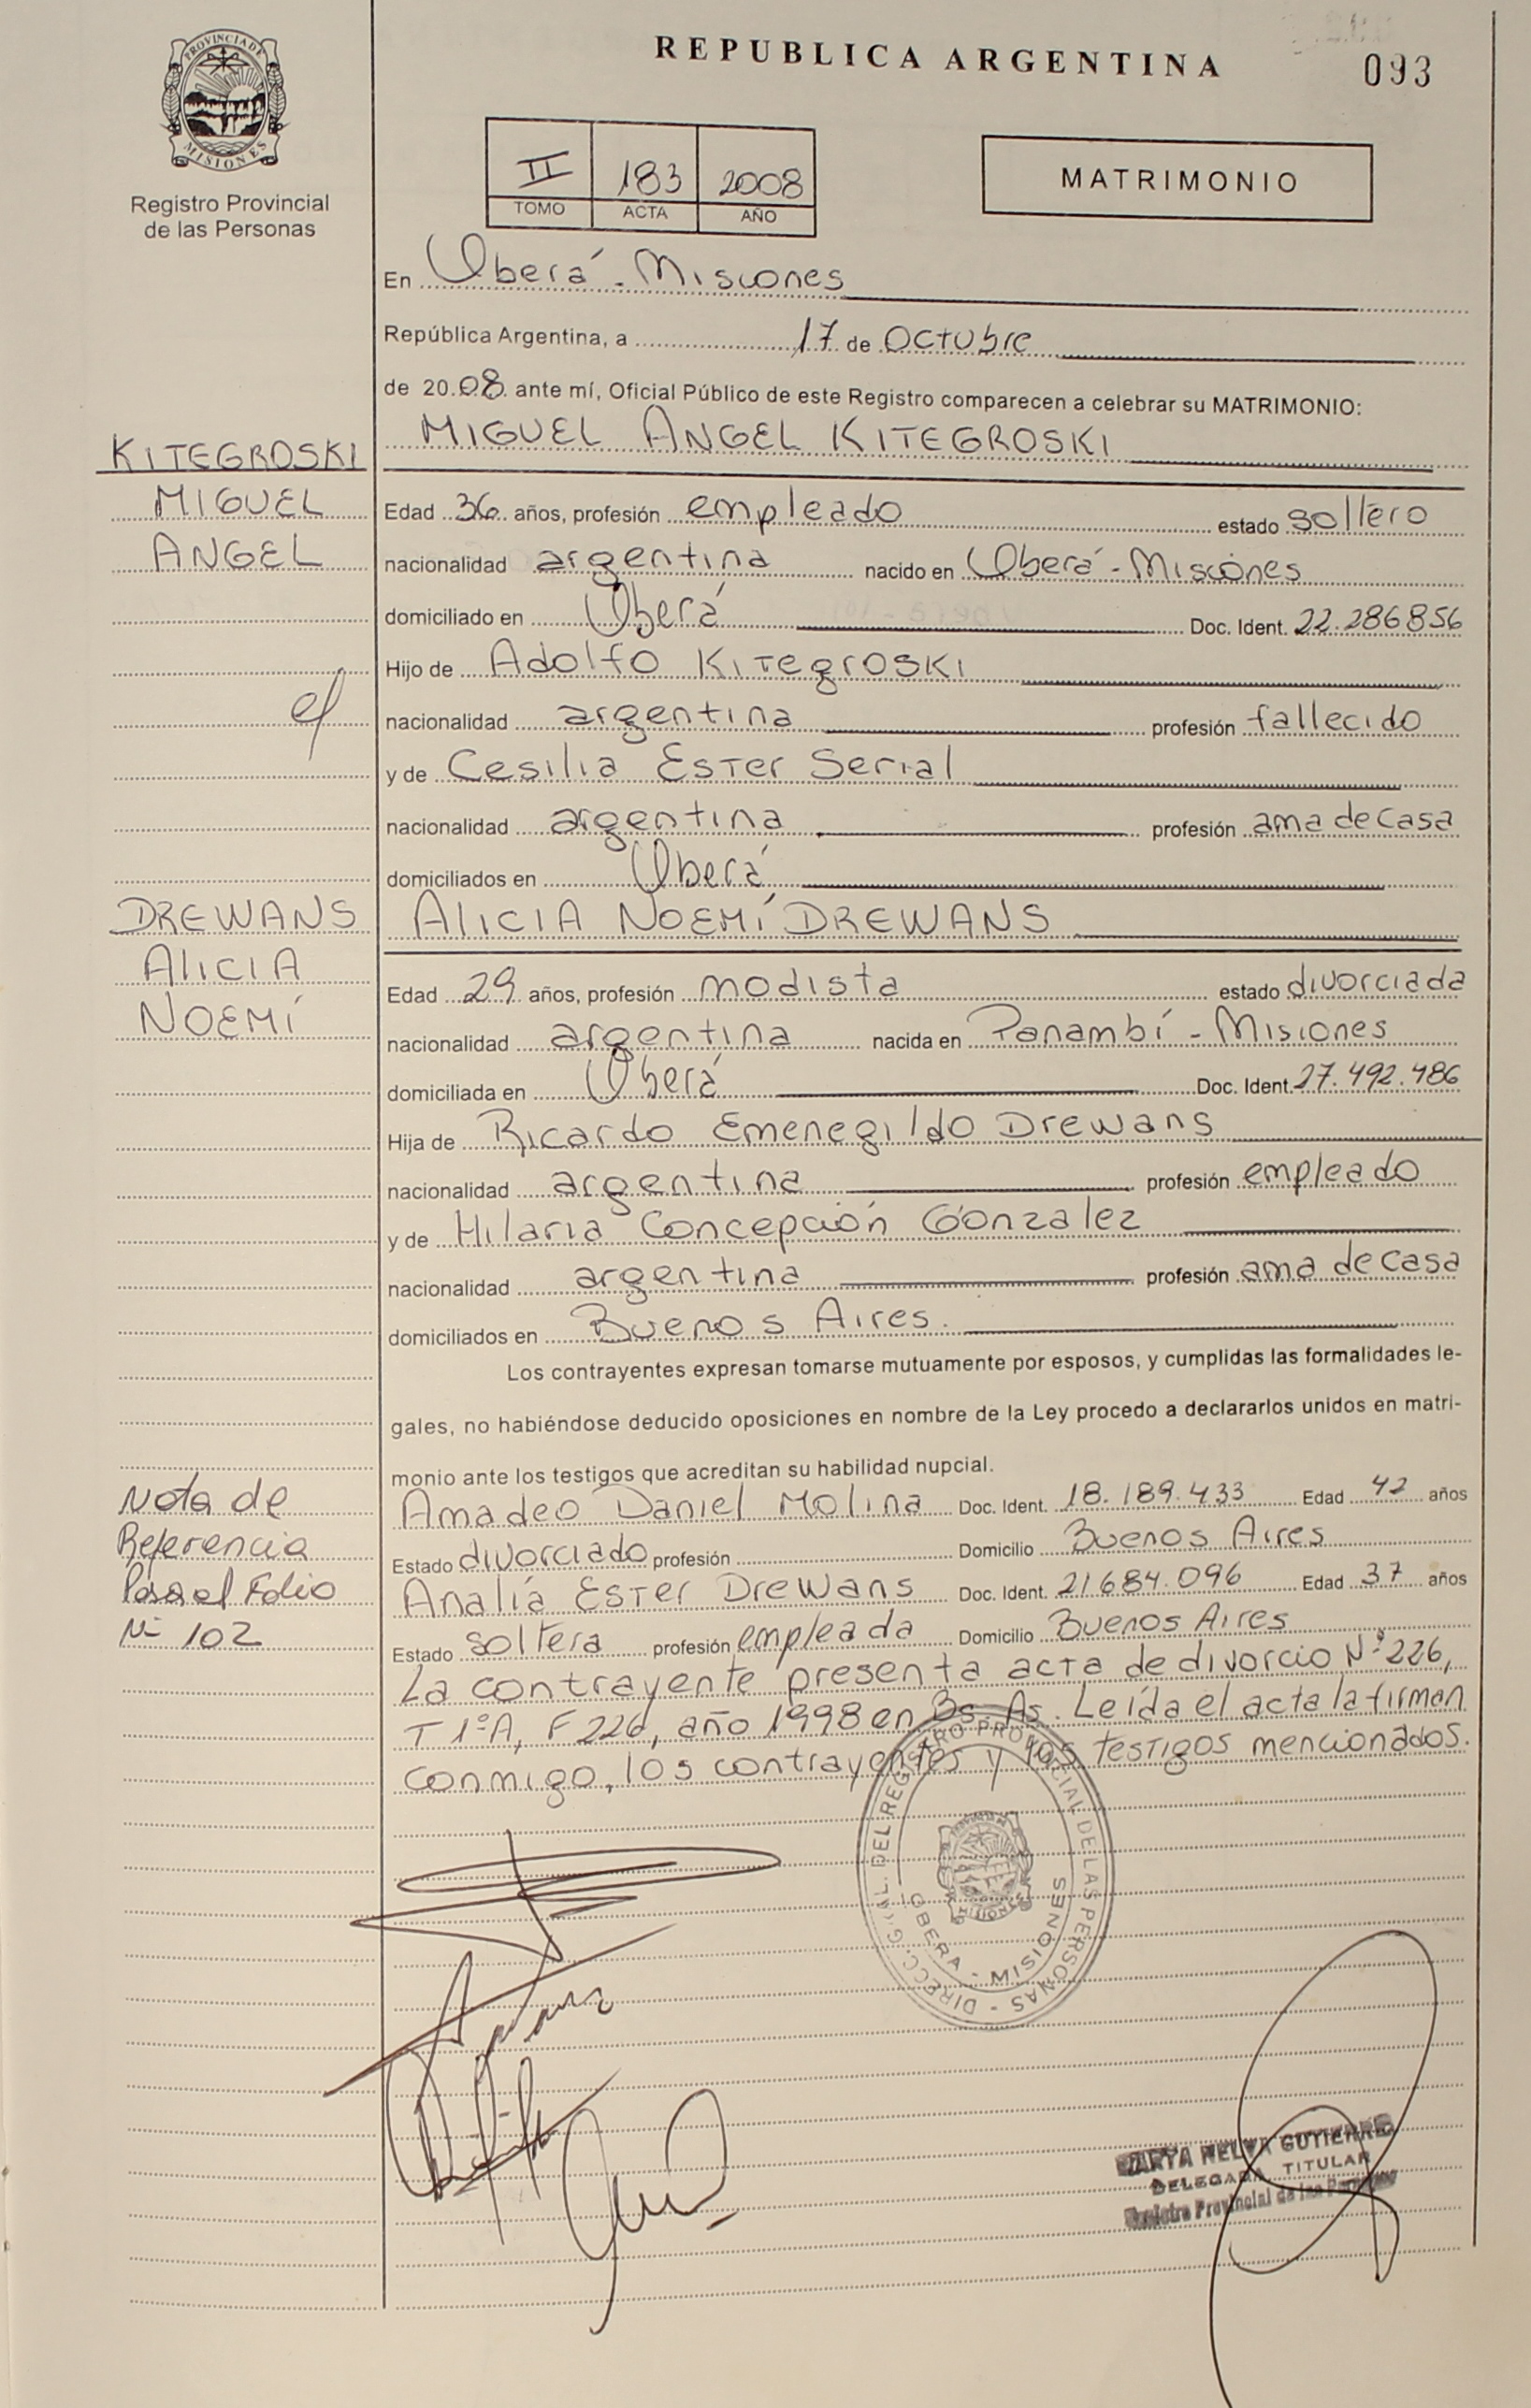 REPUBLICA ARGENTINA
093
PROVINCIA DE
MISIONES
Registro Provincial
de las Personas
II 183 2008
TOMO ACTA AÑO
MATRIMONIO
En Oberá - Misiones
República Argentina, a 17 de Octubre
de 20 08 ante mí, Oficial Público de este Registro comparecen a celebrar su MATRIMONIO:
KITEGROSKI
MIGUEL
ANGEL
MIGUEL ANGEL KITEGROSKI
Edad 36 años, profesión empleado estado soltero
nacionalidad argentina nacido en Oberá - Misiones
domiciliado en Oberá Doc. Ident. 22.286856
Hijo de Adolfo Kitegroski
nacionalidad argentina profesión fallecido
y de Cesilia Ester Serial
nacionalidad argentina profesión ama de casa
domiciliados en Oberá
DREWANS
ALICIA
NOEMÍ
ALICIA NOEMÍ DREWANS
Edad 29 años, profesión modista estado divorciada
nacionalidad argentina nacida en Panambí - Misiones
domiciliada en Oberá Doc. Ident. 27.492.486
Hija de Ricardo Emenegildo Drewans
nacionalidad argentina profesión empleado
y de Hilaria Concepción Gonzalez
nacionalidad argentina profesión ama de casa
domiciliados en Buenos Aires.
Los contrayentes expresan tomarse mutuamente por esposos, y cumplidas las formalidades le-
gales, no habiéndose deducido oposiciones en nombre de la Ley procedo a declararlos unidos en matri-
monio ante los testigos que acreditan su habilidad nupcial.
Nota de
Referencia
Pasa al Folio
Nº 102
Amadeo Daniel Molina Doc. Ident. 18.189.433 Edad 42 años
Estado divorciado profesión Domicilio Buenos Aires
Analía Ester Drewans Doc. Ident. 21684.096 Edad 37 años
Estado soltera profesión empleada Domicilio Buenos Aires
La contrayente presenta acta de divorcio Nº 226,
T 1ºA, F 226, año 1998 en Bs. As. Leída el acta la firman
conmigo, los contrayentes y los testigos mencionados.
DIRECC. GRAL. DEL REGISTRO PROVINCIAL DE LAS PERSONAS
OBERA - MISIONES
NELVA GUTIERRE
DELEGADA TITULAR
Registro Provincial de las Personas